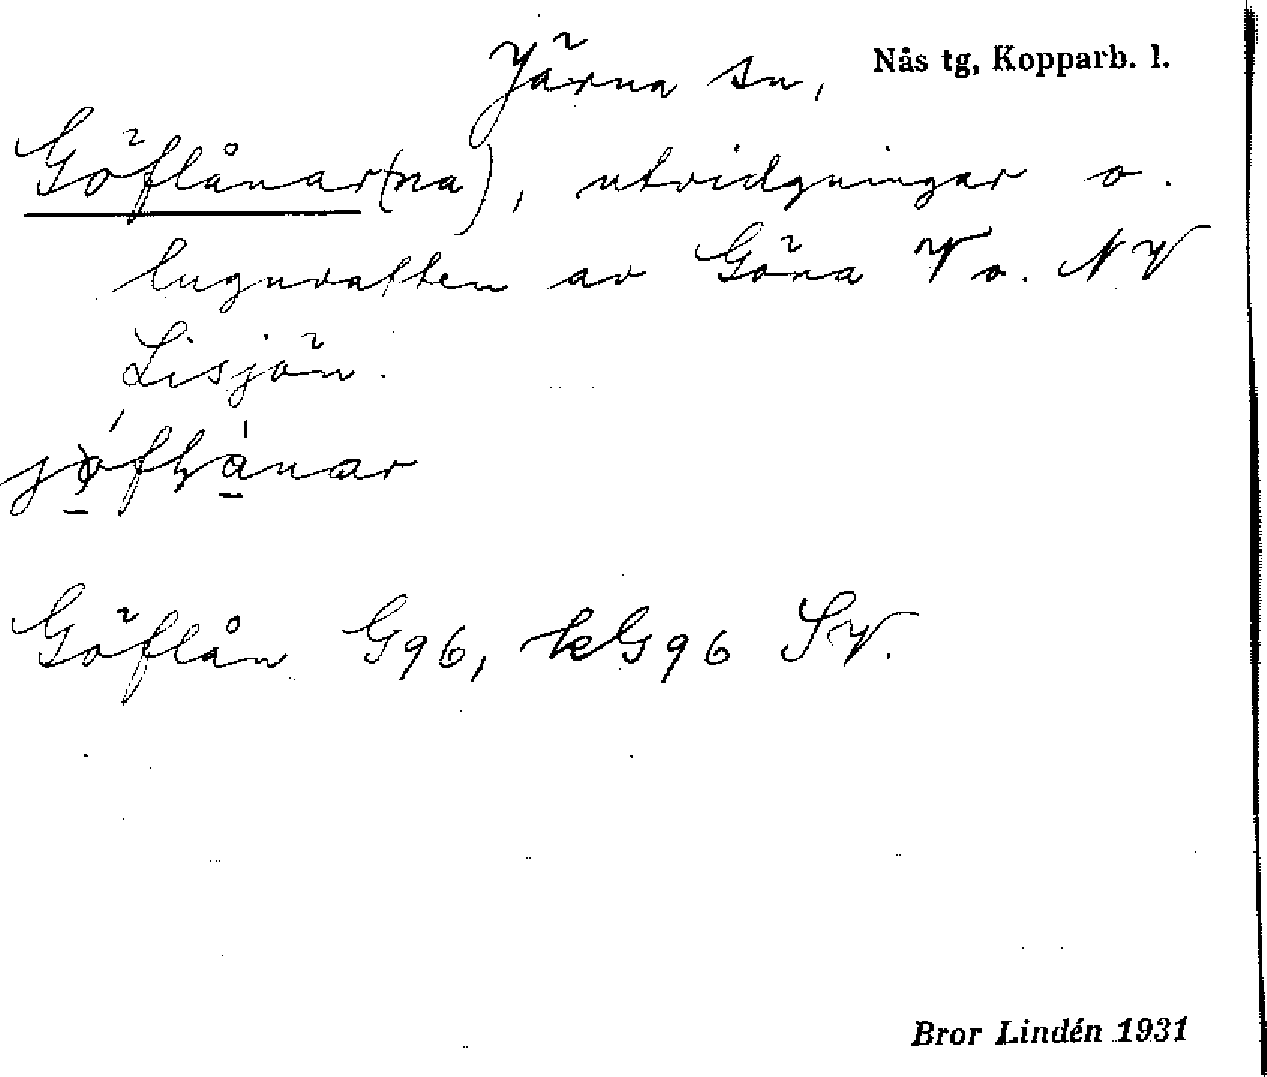 Järna sn, Nås tg, Kopparb. l.
Göflånar(na), utvidgningar o.
lugnvatten av Göna V o. NV
Lisjön.
Göflån G96, kG96 SV.
Bror Lindén 1931